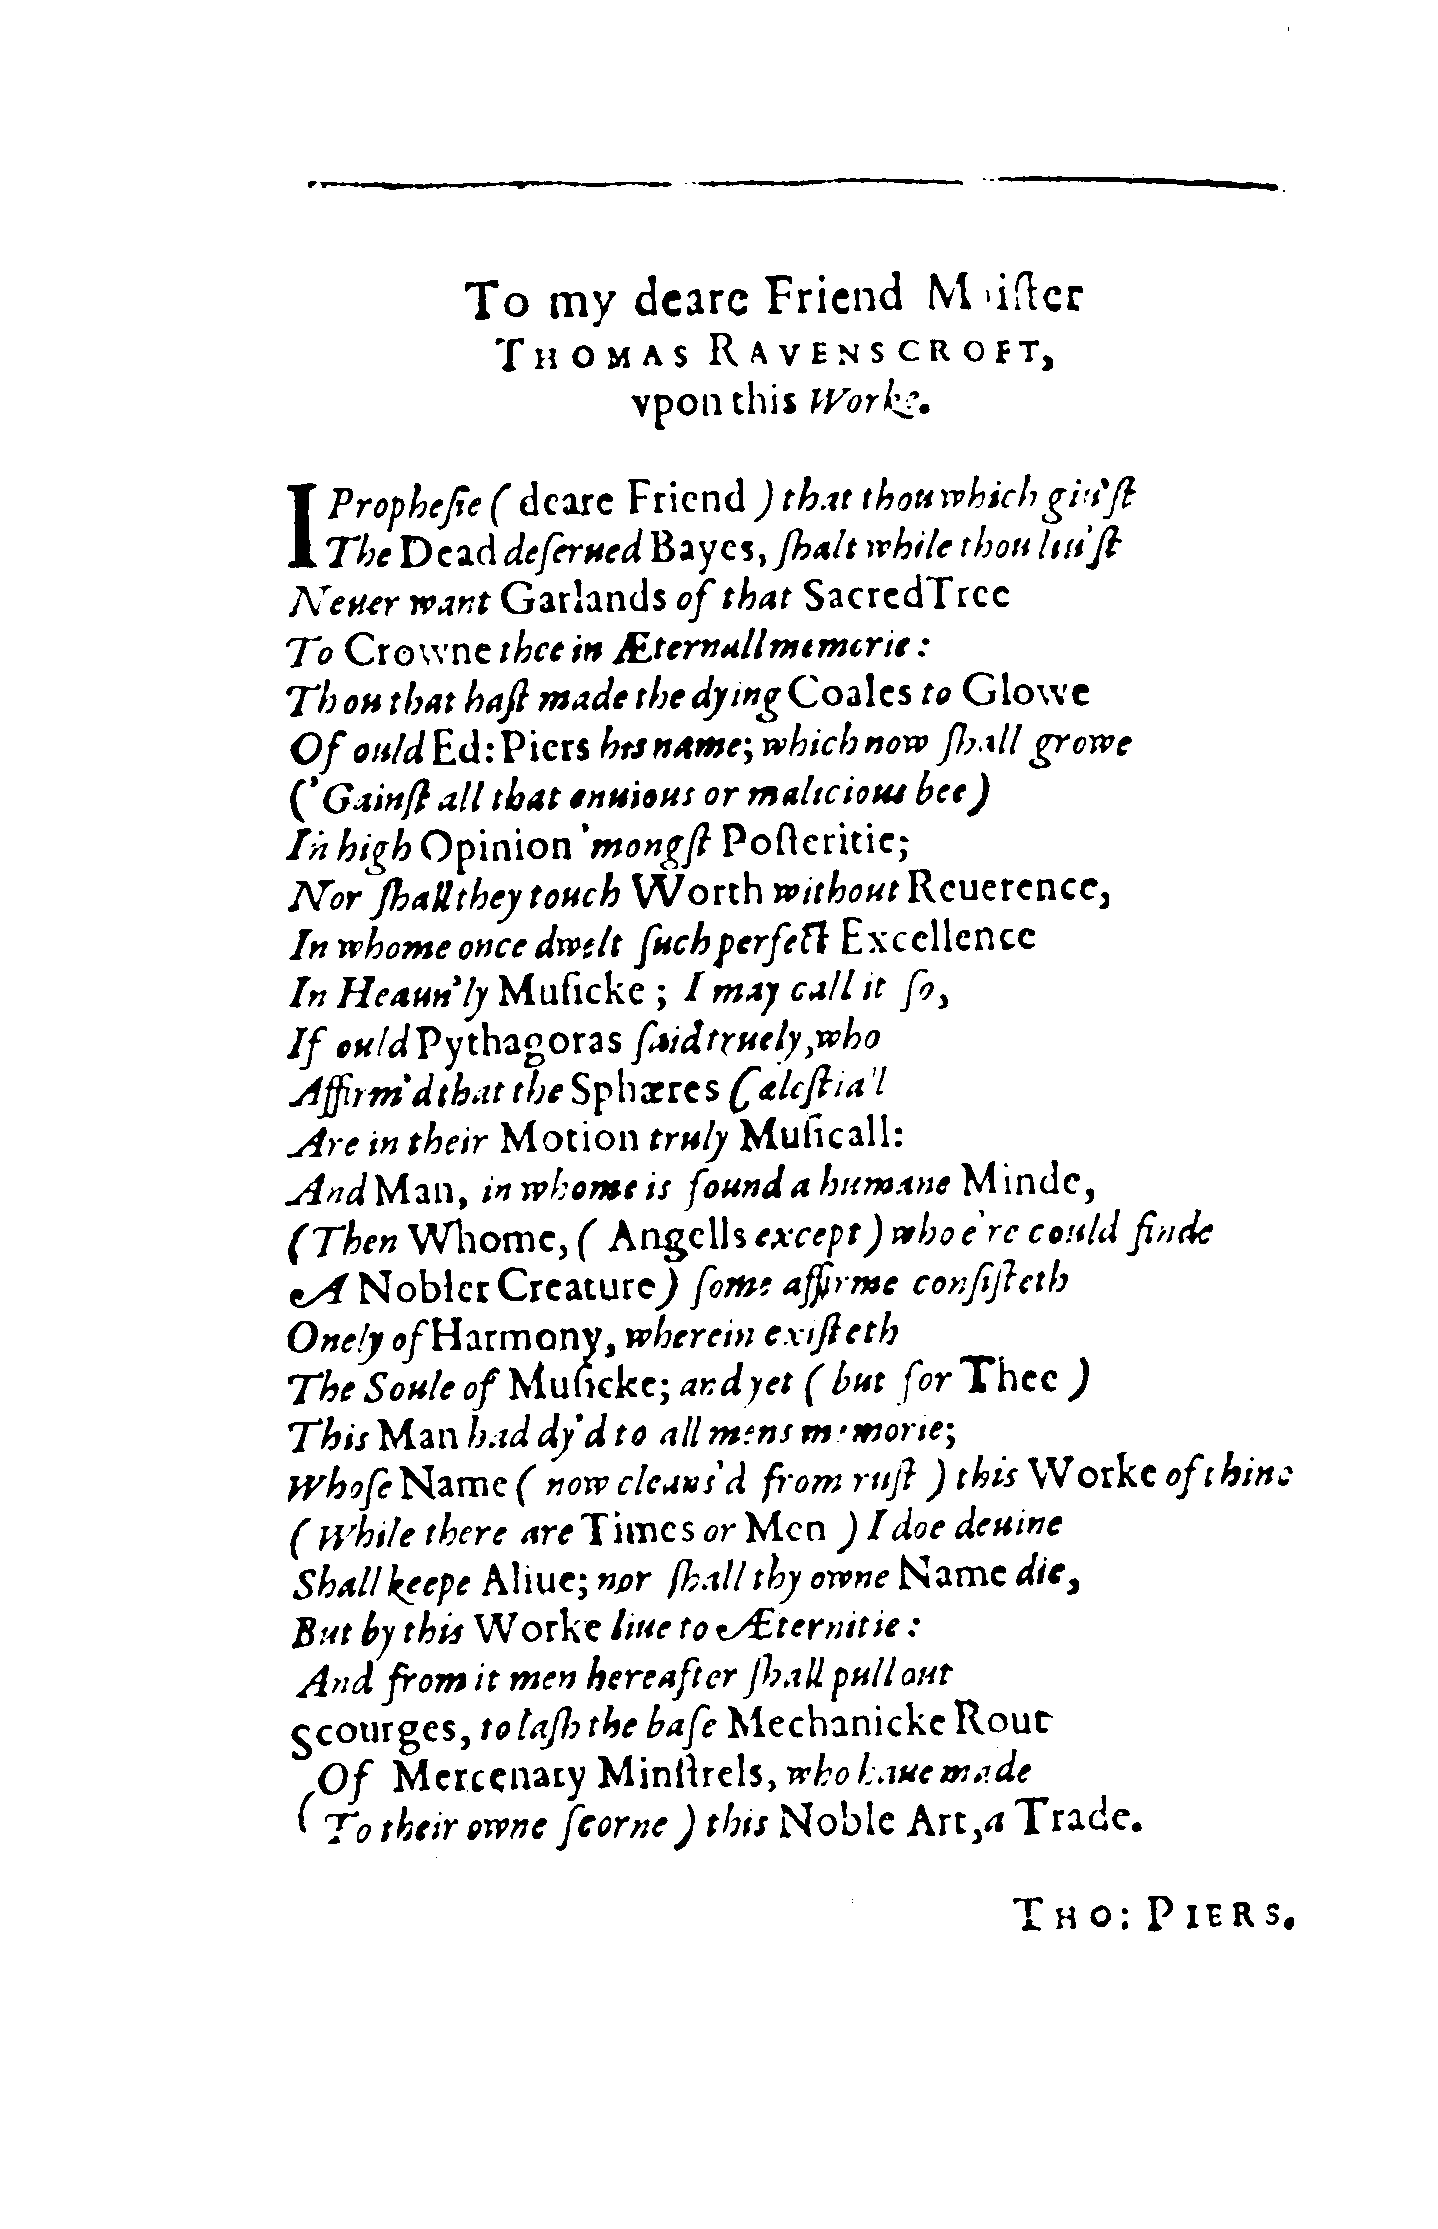 To my deare Friend Maister
THOMAS RAVENSCROFT,
vpon this Worke.
I Prophesie ( deare Friend ) that thou which giu'st
The Dead deserued Bayes, shalt while thou liu'st
Neuer want Garlands of that Sacred Tree
To Crowne thee in Æternall memorie:
Thou that hast made the dying Coales to Glowe
Of ould Ed: Piers his name; which now shall growe
('Gainst all that enuious or malicious bee)
In high Opinion 'mongst Posteritie;
Nor shall they touch Worth without Reuerence,
In whome once dwelt such perfect Excellence
In Heaun'ly Musicke ; I may call it so,
If ould Pythagoras said truely, who
Affirm'd that the Sphæres Cælestia'l
Are in their Motion truly Musicall:
And Man, in whome is found a humane Minde,
(Then Whome, ( Angells except ) who e're could finde
A Nobler Creature) some affirme consisteth
Onely of Harmony, wherein existeth
The Soule of Musicke; and yet ( but for Thee )
This Man had dy'd to all mens memorie;
Whose Name ( now cleans'd from rust ) this Worke of thine
( While there are Times or Men ) I doe deuine
Shall keepe Aliue; nor shall thy owne Name die,
But by this Worke liue to Æternitie:
And from it men hereafter shall pull out
Scourges, to lash the base Mechanicke Rout
Of Mercenary Minstrels, who haue made
( To their owne scorne ) this Noble Art, a Trade.
THO: PIERS.